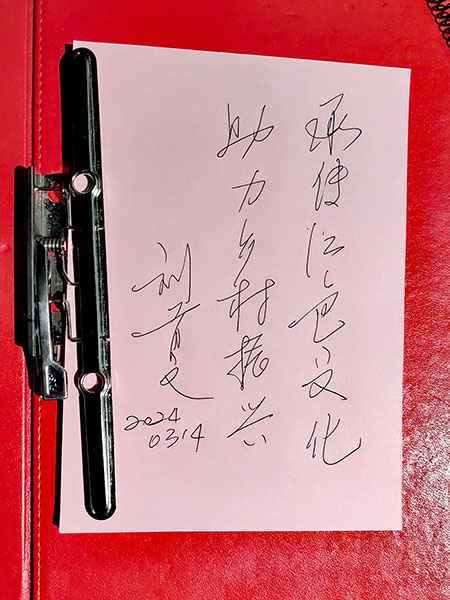 承传红色文化
助力乡村振兴
刘
2024
0314